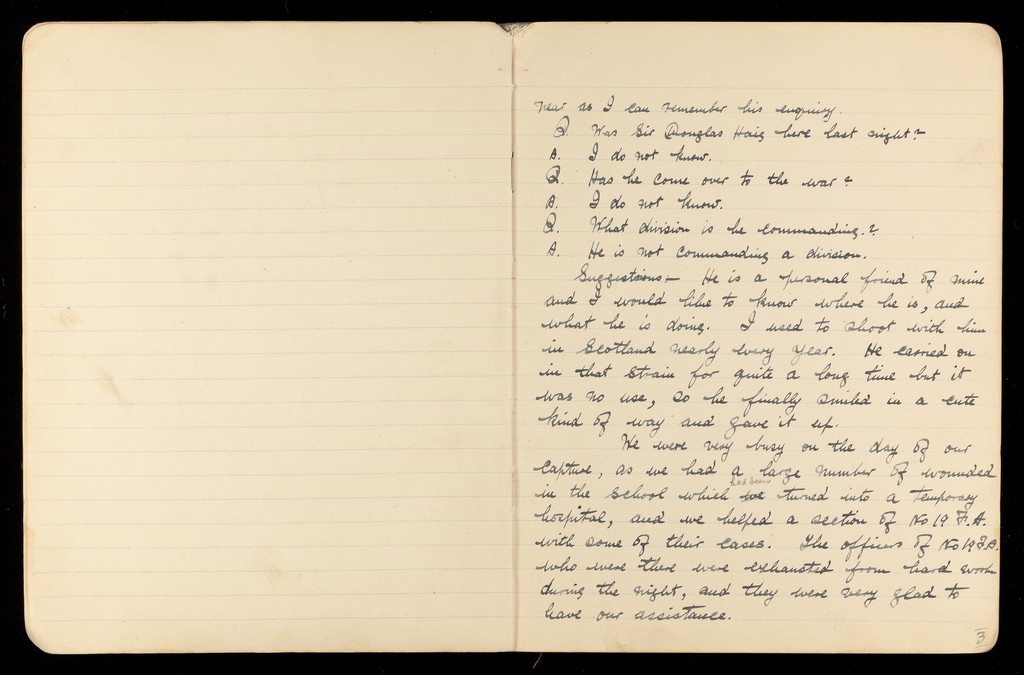 near as I can remember his enquiry.
Q. Was Sir Douglas Haig here last night?
A. I do not know.
Q. Has he come over to the war?
A. I do not know.
Q. What division is he commanding.?
A. He is not commanding a division.
Suggestions— He is a personal friend of mine
and I would like to know where he is, and
what he is doing. I used to shoot with him
in Scotland nearly every year. He carried on
in that strain for quite a long time but it
was no use, so he finally smiled in a cute
kind of way and gave it up.
We were very busy on the day of our
capture, as we had a large number of wounded
had been
in the school which we turned into a temporary
hospital, and we helped a section of No 19 F.A.
with some of their cases. The officers of No 19 F.A.
who were there were exhausted from hard work
during the night, and they were very glad to
have our assistance.
3